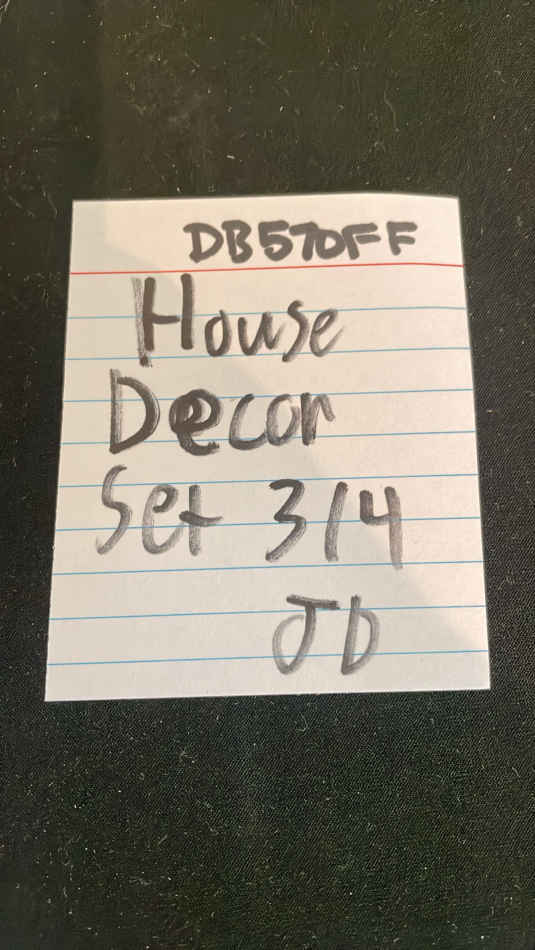 DB57OFF
House
Decor
Set 3/4
JD